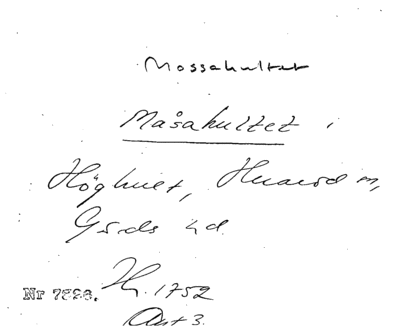 Mossahultet
Måsahultet i
Höghult, Huaröd sn,
Gärds hd.
Nr 7828. Hr. 1752
Akt 3.